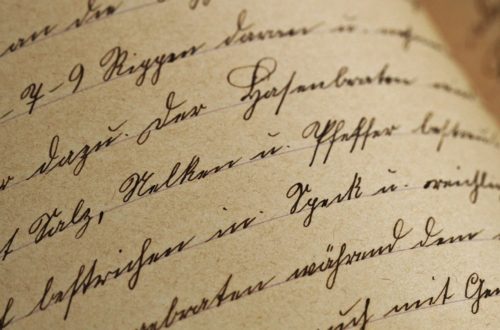 an die
-7-9 Rippen daran u.
dazu. Der Hasenbraten
Salz, Nelken u. Pfeffer bestreut
bestrichen in Speck u. reichlich
gebraten während dem
auch mit